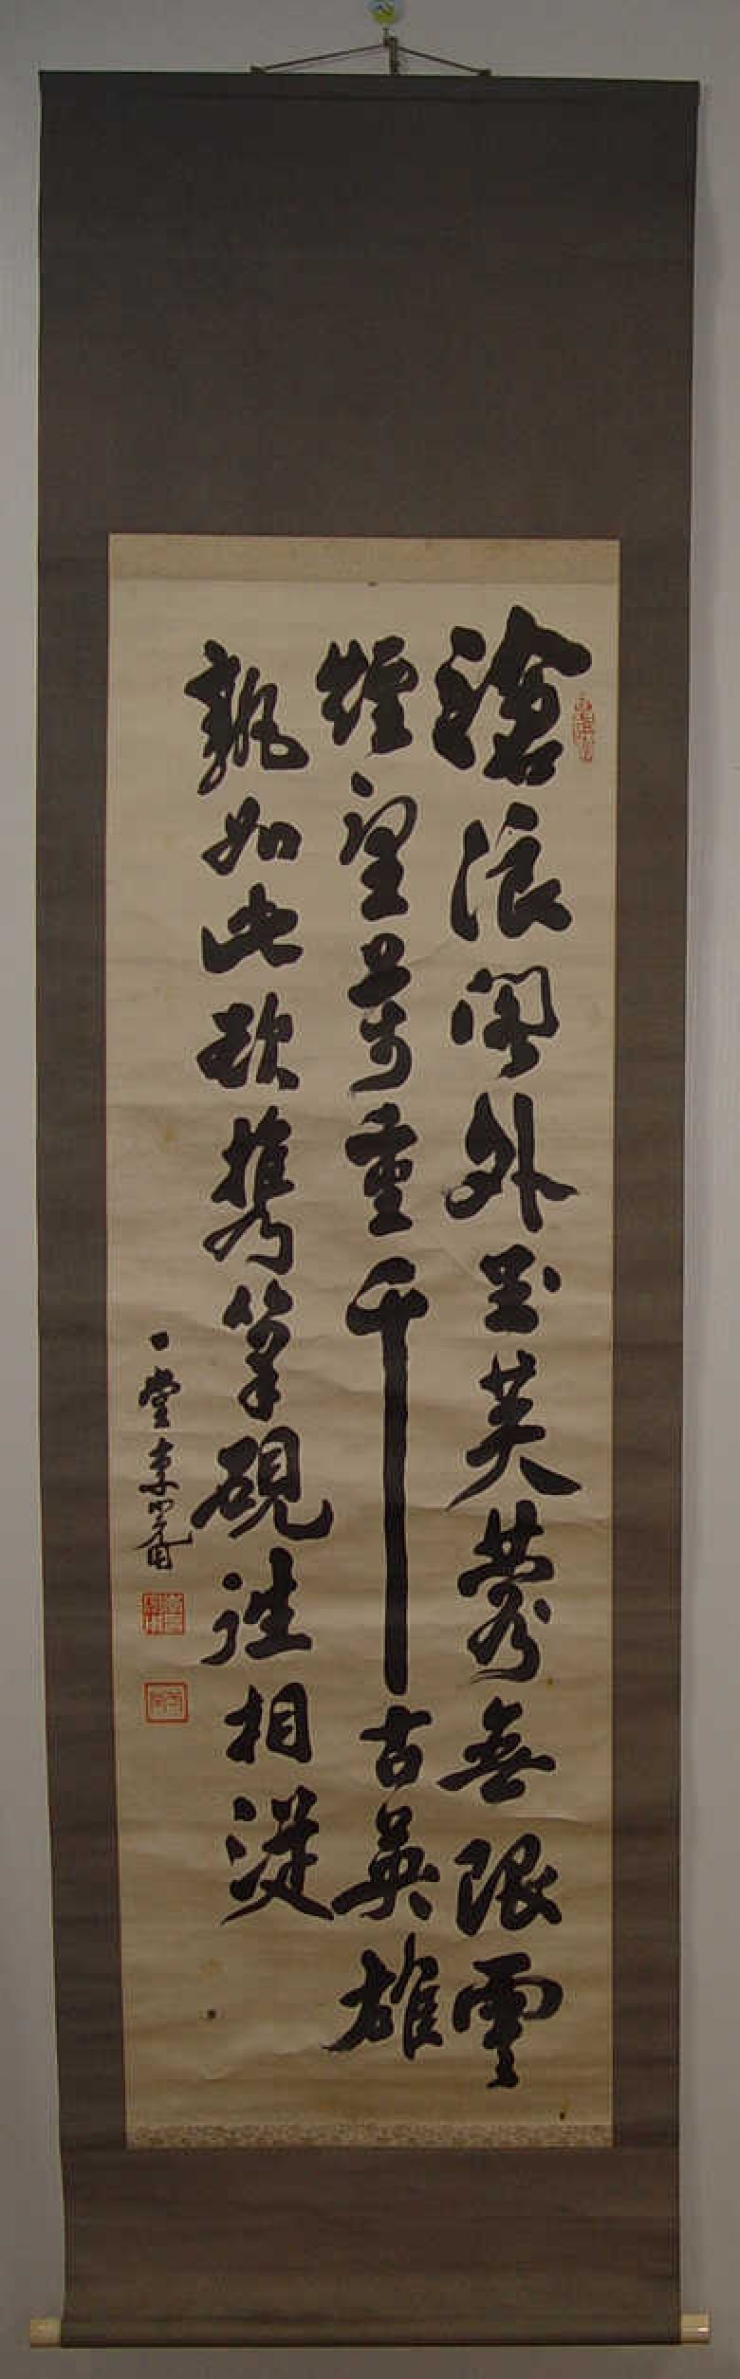 滄浪閣外玉芙蓉無限雲
煙望萬重千古英雄
孰如此欲攜筆硯往相從
一堂李完用